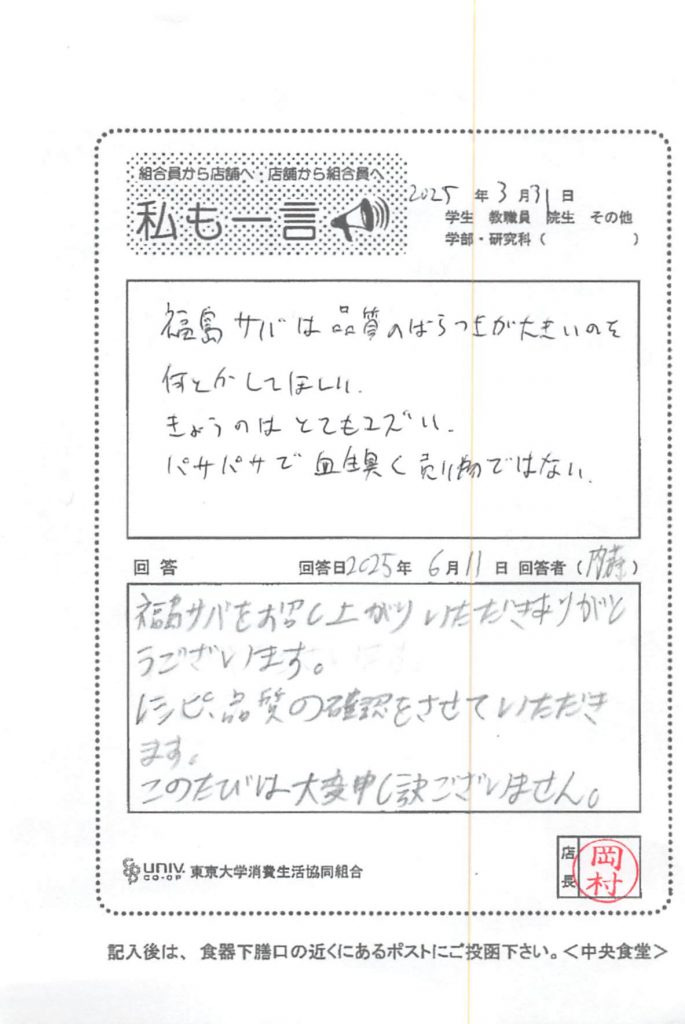 組合員から店舗へ・店舗から組合員へ
私も一言
2025年3月31日
学生 教職員 院生 その他
学部・研究科（ ）
福島サバは品質のばらつきが大きいのを
何とかしてほしい.
きょうのはとてもマズい.
パサパサで血生臭く売り物ではない.
回答 回答日2025年6月11日 回答者（内藤）
福島サバをお召し上がりいただきありがと
うございます。
レシピ、品質の確認をさせていただき
ます。
このたびは大変申し訳ございません。
UNIV. CO-OP 東京大学消費生活協同組合
店長 岡村
記入後は、食器下膳口の近くにあるポストにご投函下さい。＜中央食堂＞